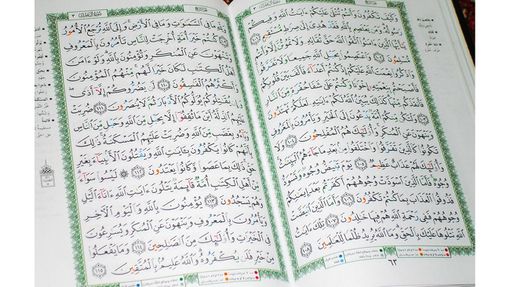 وَكَيْفَ تَكْفُرُونَ وَأَنتُمْ تُتْلَىٰ عَلَيْكُمْ ءَايَٰتُ ٱللَّهِ وَفِيكُمْ
رَسُولُهُۥ وَمَن يَعْتَصِم بِٱللَّهِ فَقَدْ هُدِىَ إِلَىٰ صِرَٰطٍ مُّسْتَقِيمٍ
١٠١ يَٰٓأَيُّهَا ٱلَّذِينَ ءَامَنُوا۟ ٱتَّقُوا۟ ٱللَّهَ حَقَّ تُقَاتِهِۦ وَلَا تَمُوتُنَّ إِلَّا وَأَنتُم
مُّسْلِمُونَ ١٠٢ وَٱعْتَصِمُوا۟ بِحَبْلِ ٱللَّهِ جَمِيعًا وَلَا تَفَرَّقُوا۟
وَٱذْكُرُوا۟ نِعْمَتَ ٱللَّهِ عَلَيْكُمْ إِذْ كُنتُمْ أَعْدَآءً فَأَلَّفَ بَيْنَ قُلُوبِكُمْ
فَأَصْبَحْتُم بِنِعْمَتِهِۦٓ إِخْوَٰنًا وَكُنتُمْ عَلَىٰ شَفَا حُفْرَةٍ مِّنَ ٱلنَّارِ
فَأَنقَذَكُم مِّنْهَا كَذَٰلِكَ يُبَيِّنُ ٱللَّهُ لَكُمْ ءَايَٰتِهِۦ لَعَلَّكُمْ تَهْتَدُونَ
١٠٣ وَلْتَكُن مِّنكُمْ أُمَّةٌ يَدْعُونَ إِلَى ٱلْخَيْرِ وَيَأْمُرُونَ بِٱلْمَعْرُوفِ
وَيَنْهَوْنَ عَنِ ٱلْمُنكَرِ وَأُو۟لَٰٓئِكَ هُمُ ٱلْمُفْلِحُونَ ١٠٤ وَلَا تَكُونُوا۟
كَٱلَّذِينَ تَفَرَّقُوا۟ وَٱخْتَلَفُوا۟ مِنۢ بَعْدِ مَا جَآءَهُمُ ٱلْبَيِّنَٰتُ
وَأُو۟لَٰٓئِكَ لَهُمْ عَذَابٌ عَظِيمٌ ١٠٥ يَوْمَ تَبْيَضُّ وُجُوهٌ وَتَسْوَدُّ
وُجُوهٌ فَأَمَّا ٱلَّذِينَ ٱسْوَدَّتْ وُجُوهُهُمْ أَكَفَرْتُم بَعْدَ إِيمَٰنِكُمْ
فَذُوقُوا۟ ٱلْعَذَابَ بِمَا كُنتُمْ تَكْفُرُونَ ١٠٦ وَأَمَّا ٱلَّذِينَ ٱبْيَضَّتْ
وُجُوهُهُمْ فَفِى رَحْمَةِ ٱللَّهِ هُمْ فِيهَا خَٰلِدُونَ ١٠٧ تِلْكَ ءَايَٰتُ
ٱللَّهِ نَتْلُوهَا عَلَيْكَ بِٱلْحَقِّ وَمَا ٱللَّهُ يُرِيدُ ظُلْمًا لِّلْعَٰلَمِينَ ١٠٨
٦٣
وَلِلَّهِ مَا فِى ٱلسَّمَٰوَٰتِ وَمَا فِى ٱلْأَرْضِ وَإِلَى ٱللَّهِ تُرْجَعُ ٱلْأُمُورُ
١٠٩ كُنتُمْ خَيْرَ أُمَّةٍ أُخْرِجَتْ لِلنَّاسِ تَأْمُرُونَ بِٱلْمَعْرُوفِ
وَتَنْهَوْنَ عَنِ ٱلْمُنكَرِ وَتُؤْمِنُونَ بِٱللَّهِ وَلَوْ ءَامَنَ
أَهْلُ ٱلْكِتَٰبِ لَكَانَ خَيْرًا لَّهُم مِّنْهُمُ ٱلْمُؤْمِنُونَ
وَأَكْثَرُهُمُ ٱلْفَٰسِقُونَ ١١٠ لَن يَضُرُّوكُمْ إِلَّآ أَذًى
وَإِن يُقَٰتِلُوكُمْ يُوَلُّوكُمُ ٱلْأَدْبَارَ ثُمَّ لَا يُنصَرُونَ ١١١ ضُرِبَتْ
عَلَيْهِمُ ٱلذِّلَّةُ أَيْنَ مَا ثُقِفُوٓا۟ إِلَّا بِحَبْلٍ مِّنَ ٱللَّهِ وَحَبْلٍ مِّنَ ٱلنَّاسِ
وَبَآءُو بِغَضَبٍ مِّنَ ٱللَّهِ وَضُرِبَتْ عَلَيْهِمُ ٱلْمَسْكَنَةُ ذَٰلِكَ
بِأَنَّهُمْ كَانُوا۟ يَكْفُرُونَ بِـَٔايَٰتِ ٱللَّهِ وَيَقْتُلُونَ ٱلْأَنۢبِيَآءَ بِغَيْرِ
حَقٍّ ذَٰلِكَ بِمَا عَصَوا۟ وَّكَانُوا۟ يَعْتَدُونَ ١١٢ لَيْسُوا۟ سَوَآءً
مِّنْ أَهْلِ ٱلْكِتَٰبِ أُمَّةٌ قَآئِمَةٌ يَتْلُونَ ءَايَٰتِ ٱللَّهِ ءَانَآءَ ٱلَّيْلِ
وَهُمْ يَسْجُدُونَ ١١٣ يُؤْمِنُونَ بِٱللَّهِ وَٱلْيَوْمِ ٱلْءَاخِرِ
وَيَأْمُرُونَ بِٱلْمَعْرُوفِ وَيَنْهَوْنَ عَنِ ٱلْمُنكَرِ وَيُسَٰرِعُونَ
فِى ٱلْخَيْرَٰتِ وَأُو۟لَٰٓئِكَ مِنَ ٱلصَّٰلِحِينَ ١١٤ وَمَا يَفْعَلُوا۟
مِنْ خَيْرٍ فَلَن يُكْفَرُوهُ وَٱللَّهُ عَلِيمٌۢ بِٱلْمُتَّقِينَ ١١٥